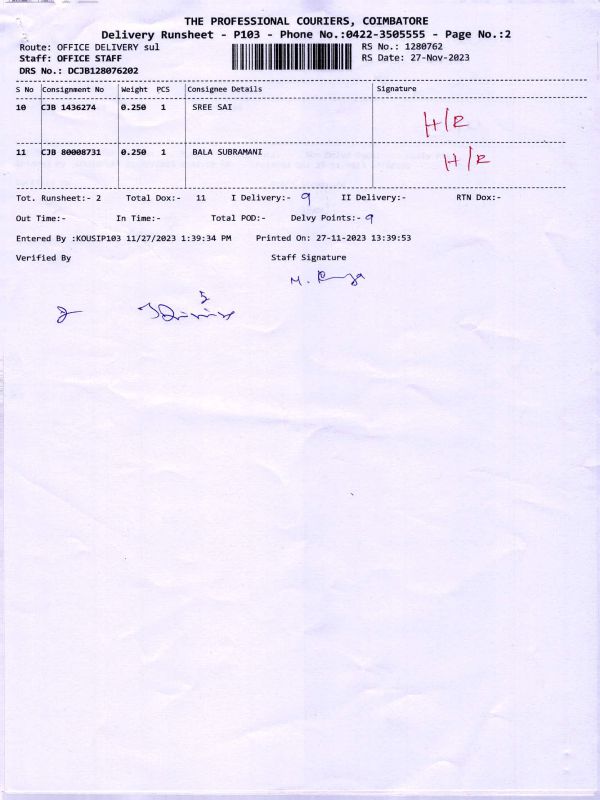 THE PROFESSIONAL COURIERS, COIMBATORE
Delivery Runsheet - P103 - Phone No.:0422-3505555 - Page No.:2
Route: OFFICE DELIVERY sul RS No.: 1280762
Staff: OFFICE STAFF RS Date: 27-Nov-2023
DRS No.: DCJB128076202
S No Consignment No Weight PCS Consignee Details Signature
10 CJB 1436274 0.250 1 SREE SAI H/R
11 CJB 80008731 0.250 1 BALA SUBRAMANI H/R
Tot. Runsheet:- 2 Total Dox:- 11 I Delivery:- 9 II Delivery:- RTN Dox:-
Out Time:- In Time:- Total POD:- Delvy Points:- 9
Entered By :KOUSIP103 11/27/2023 1:39:34 PM Printed On: 27-11-2023 13:39:53
Verified By Staff Signature